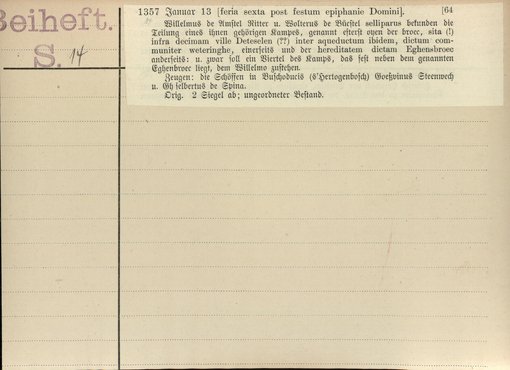 Beiheft.
S. 14
1357 Januar 13 [feria sexta post festum epiphanie Domini]. [64
Willelmus de Amstel Ritter u. Wolterus de Bücstel selliparus bekunden die
Teilung eines ihnen gehörigen Kampes, genannt efterst oyen der broec, sita (!)
infra decimam ville Deteselen (??) inter aqueductum ibidem, dictum com-
muniter weteringhe, einerseits und der hereditatem dictam Eghensbroec
anderseits: u. zwar soll ein Viertel des Kamps, das fest neben dem genannten
Eghenbroec liegt, dem Willelmo zustehen.
Zeugen: die Schöffen in Buschoducis (s'Hertogenbosch) Goeswinus Steenwech
u. Ghiselbertus de Spina.
Orig. 2 Siegel ab; ungeordneter Bestand.